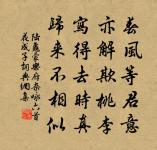 春風等君意
亦解欺桃李
寫得去時真
歸來不相似
陸龜蒙樂府雜詠六首
花成子詞典網集